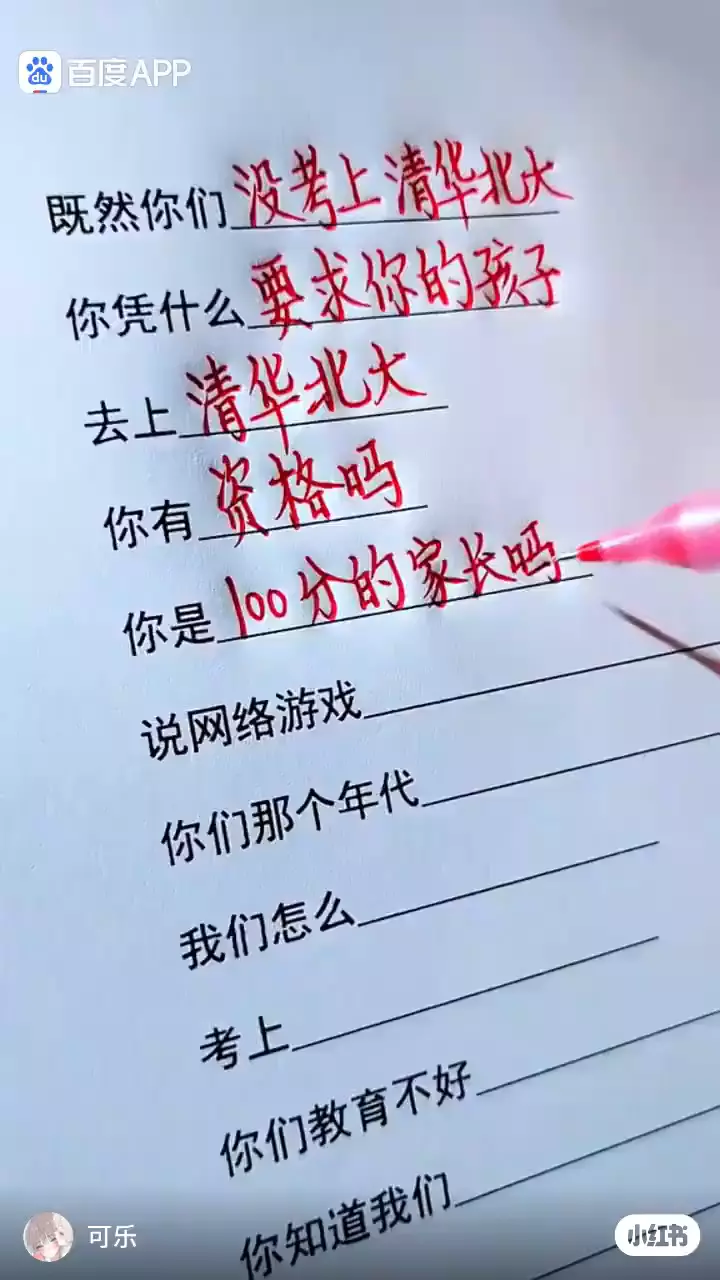 百度APP
既然你们没考上清华北大
你凭什么要求你的孩子
去上清华北大
你有资格吗
你是100分的家长吗
说网络游戏
你们那个年代
我们怎么
考上
你们教育不好
你知道我们
可乐
小红书